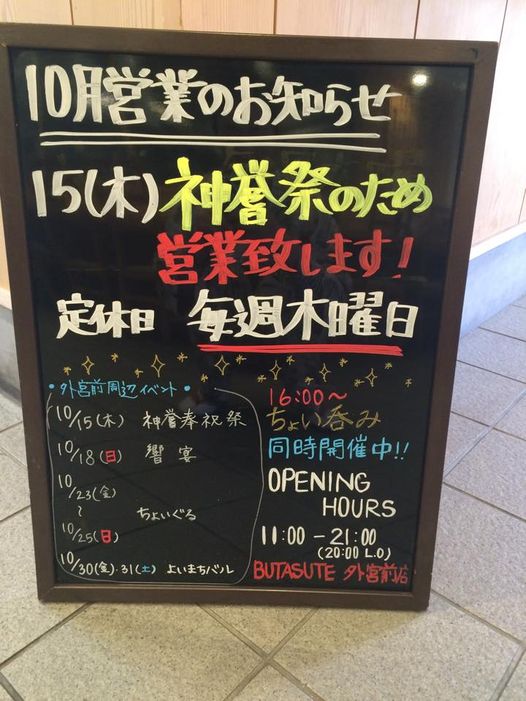 10月営業のお知らせ
15(木)神嘗祭のため
営業致します!
定休日 毎週木曜日
・外宮前周辺イベント・
10/15(木) 神嘗奉祝祭
10/18(日) 響宴
10/23(金)
〜 ちょいぐる
10/25(日)
10/30(金)・31(土) よいまちバル
16:00〜
ちょい呑み
同時開催中!!
OPENING
HOURS
11:00-21:00
(20:00 L.O)
BUTASUTE 外宮前店